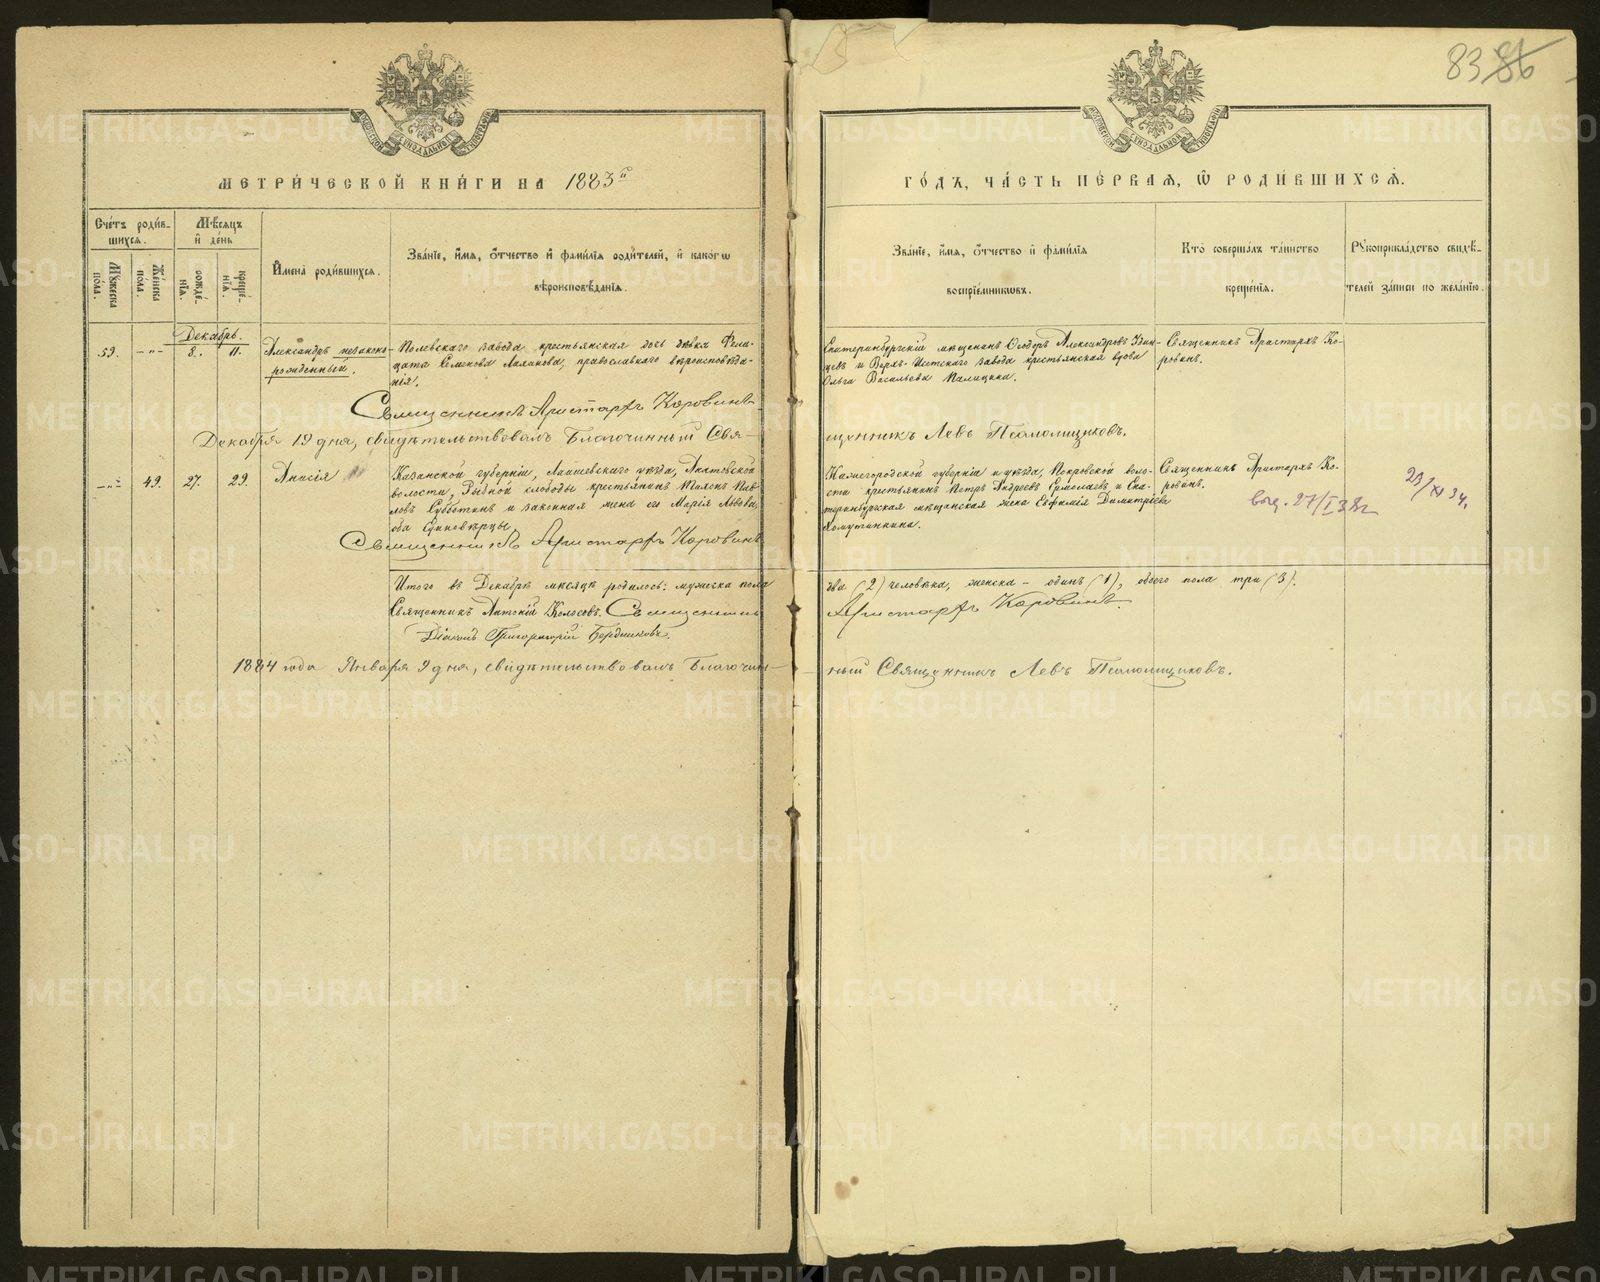 83 86
МЕТРИЧЕСКОЙ КНИГИ НА 1883й
ГОДЪ, ЧАСТЬ ПЕРВАЯ, Ѡ РОДИВШИХСЯ.
Счетъ родив-
шихся.
Мꙋжеска
пола.
Женска
пола.
Мѣсяцъ
и день
рожде-
нїя.
креще-
нїя.
Имена родившихся.
Званїе, имя, ѻтчество и фамилїя родителей, и какогѡ
вѣроисповѣданїя.
Званїе, имя, ѻтчество и фамилїя
воспрїемникѡвъ.
Кто совершалъ таинство
крещенїя.
Рꙋкоприкладство свидѣ-
телей записи по желанїю.
Декабрь.
59. -„- 8. 11. Александръ незаконно-
рожденный.
Полевскаго завода крестьянская дочь дѣвка
Семенова, православнаго вѣроисповѣда-
нія.
Екатеринбургскій мѣщанинъ Ѳеодоръ Александровъ
и Верхъ-Исетскаго завода крестьянская вдова
Ольга Васильева Палицина.
Священникъ Аристархъ Ко-
ровинъ.
Священникъ Аристархъ Коровинъ
Декабря 19 дня, свидѣтельствовалъ Благочинный Свя-
щенникъ Левъ Псаломщиковъ.
-„- 49. 27. 29. Анисія
Казанской губерніи, Лаишевскаго уѣзда,
волости, Рыбной слободы крестьянинъ Пав-
ловъ Субботинъ и законная жена его Марія Львова,
оба Единовѣрцы.
Нижегородской губерніи и уѣзда, Покровской воло-
сти крестьянинъ Петръ Андреевъ Ермолаевъ и Ека-
теринбургская мѣщанская жена Евфимія Димитріева
Хомутинкина.
Священникъ Аристархъ Ко-
ровинъ.
выд. 27/I 38г
23/XI 34.
Священникъ Аристархъ Коровинъ
Итого въ Декабрѣ мѣсяцѣ родилось: мужеска пола
два (2) человѣка, женска - одинъ (1), обоего пола три (3).
Священникъ Антоній Колосовъ. Священникъ
Аристархъ Коровинъ.
Діаконъ Бердниковъ.
1884 года Января 9 дня, свидѣтельствовалъ Благочин-
ный Священникъ Левъ Псаломщиковъ.
METRIKI.GASO-URAL.RU